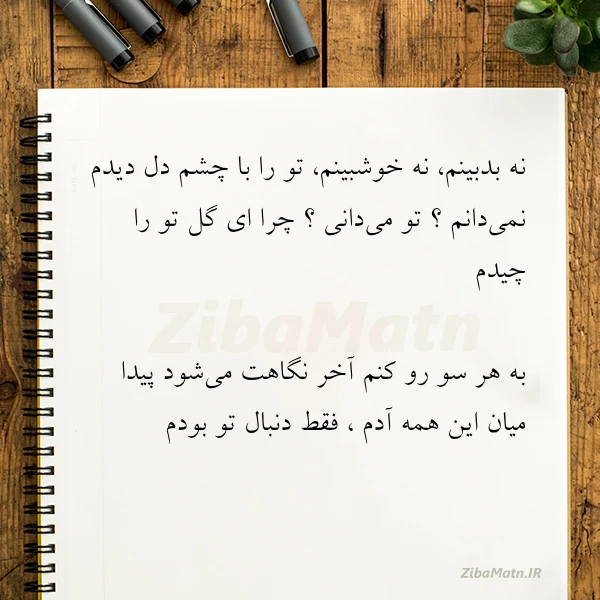 نه بدبینم، نه خوشبینم، تو را با چشم دل دیدم
نمی‌دانم ؟ تو می‌دانی ؟ چرا ای گل تو را
چیدم
ZibaMatn
به هر سو رو کنم آخر نگاهت می‌شود پیدا
میان این همه آدم ، فقط دنبال تو بودم
ZibaMatn.IR